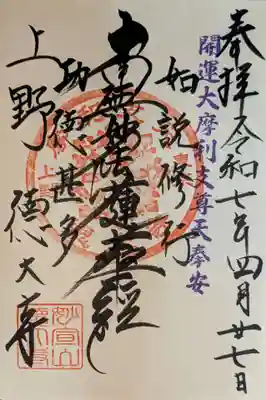 奉拝 令和七年四月廿七日
開運大摩利支尊天奉安
如説修行
南無妙法蓮華経
功徳甚多
上野 徳大寺